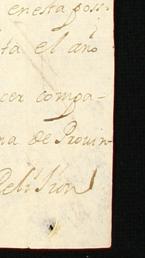 enesta poss-
ta el año
cer compa-
na de Provin-
Peti sion